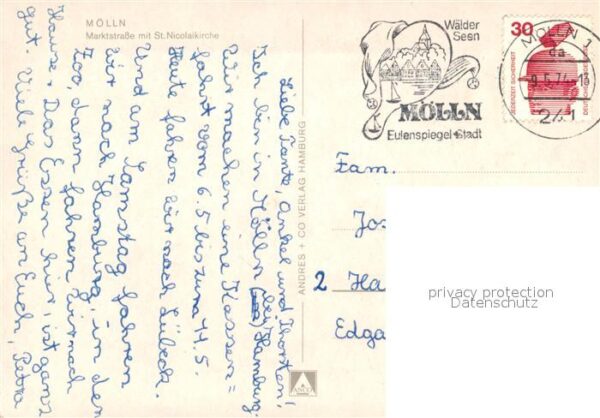 MÖLLN
Marktstraße mit St. Nicolaikirche
Liebe Tante, Onkel und Thorsten,
Ich bin in Mölln bei Hamburg.
Wir machen eine Klassen=
fahrt vom 6.5 bis zum 14.5.
Heute fahren wir nach Lübeck.
Und am Samstag fahren
wir nach Hamburg, in den
Zoo, dann fahren wir nach
Hause. Das Essen hier, ist ganz
gut. Viele Grüße an Euch, Petra
ANDRES + CO VERLAG HAMBURG
ANCO
Wälder
Seen
MÖLLN
Eulenspiegel-Stadt
MÖLLN 1
da
9.5.74-18
241
30
JEDERZEIT SICHERHEIT
DEUTSCHE BUNDESPOST
Fam.
Jos
2 Ha
Edga
privacy protection
Datenschutz